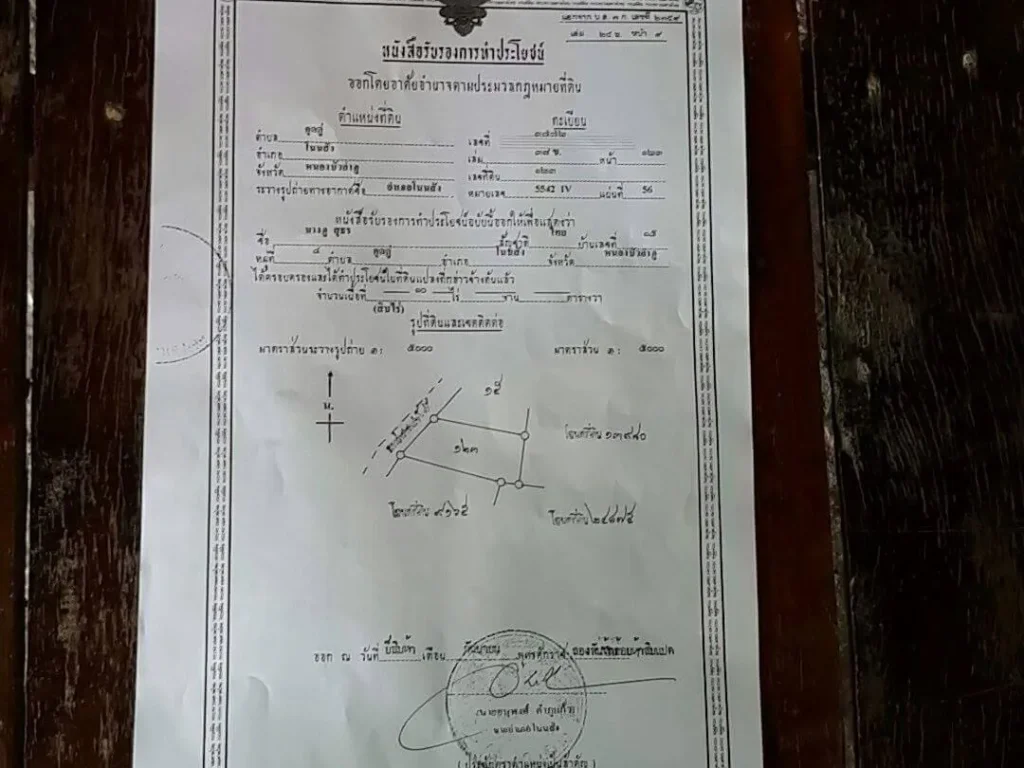 แยกจาก น.ส. ๓ ก. เลขที่ ๒๓๕๙
เล่ม ๒๔ ข. หน้า ๙
หนังสือรับรองการทำประโยชน์
ออกโดยอาศัยอำนาจตามประมวลกฎหมายที่ดิน
ตำแหน่งที่ดิน
ทะเบียน
ตำบล กุดดู่
เลขที่
อำเภอ โนนสัง
เล่ม ๓๘ ข. หน้า ๑๒๓
จังหวัด หนองบัวลำภู
เลขที่ดิน ๑๒๓
ระวางรูปถ่ายทางอากาศชื่อ อำเภอโนนสัง
หมายเลข 5542 IV แผ่นที่ 56
หนังสือรับรองการทำประโยชน์ฉบับนี้ออกให้เพื่อแสดงว่า
ชื่อ สัญชาติ ไทย บ้านเลขที่ ๑๕
หมู่ที่ ๘ ตำบล กุดดู่ อำเภอ โนนสัง จังหวัด หนองบัวลำภู
ได้ครอบครองและได้ทำประโยชน์ในที่ดินแปลงที่กล่าวข้างต้นแล้ว
จำนวนเนื้อที่ ๑๐ ไร่ งาน ตารางวา
(สิบไร่)
รูปที่ดินและเขตติดต่อ
มาตราส่วนระวางรูปถ่าย ๑ : ๕๐๐๐
มาตราส่วน ๑ : ๕๐๐๐
น.
๑๕
๑๒๓
โฉนดที่ดิน ๑๓๙๘๐
โฉนดที่ดิน ๙๑๖๕
โฉนดที่ดิน ๒๔๘๗๕
ออก ณ วันที่ ยี่สิบห้า เดือน กันยายน พุทธศักราช
นายอำเภอโนนสัง
(ประทับตราตำแหน่งเป็นสำคัญ)